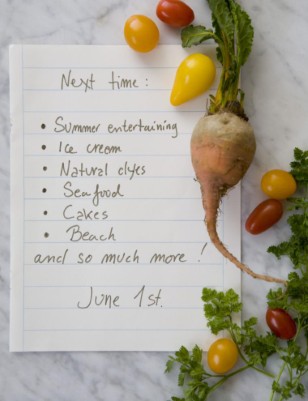 Next time :
• Summer entertaining
• Ice cream
• Natural dyes
• Seafood
• Cakes
• Beach
and so much more !
June 1st.